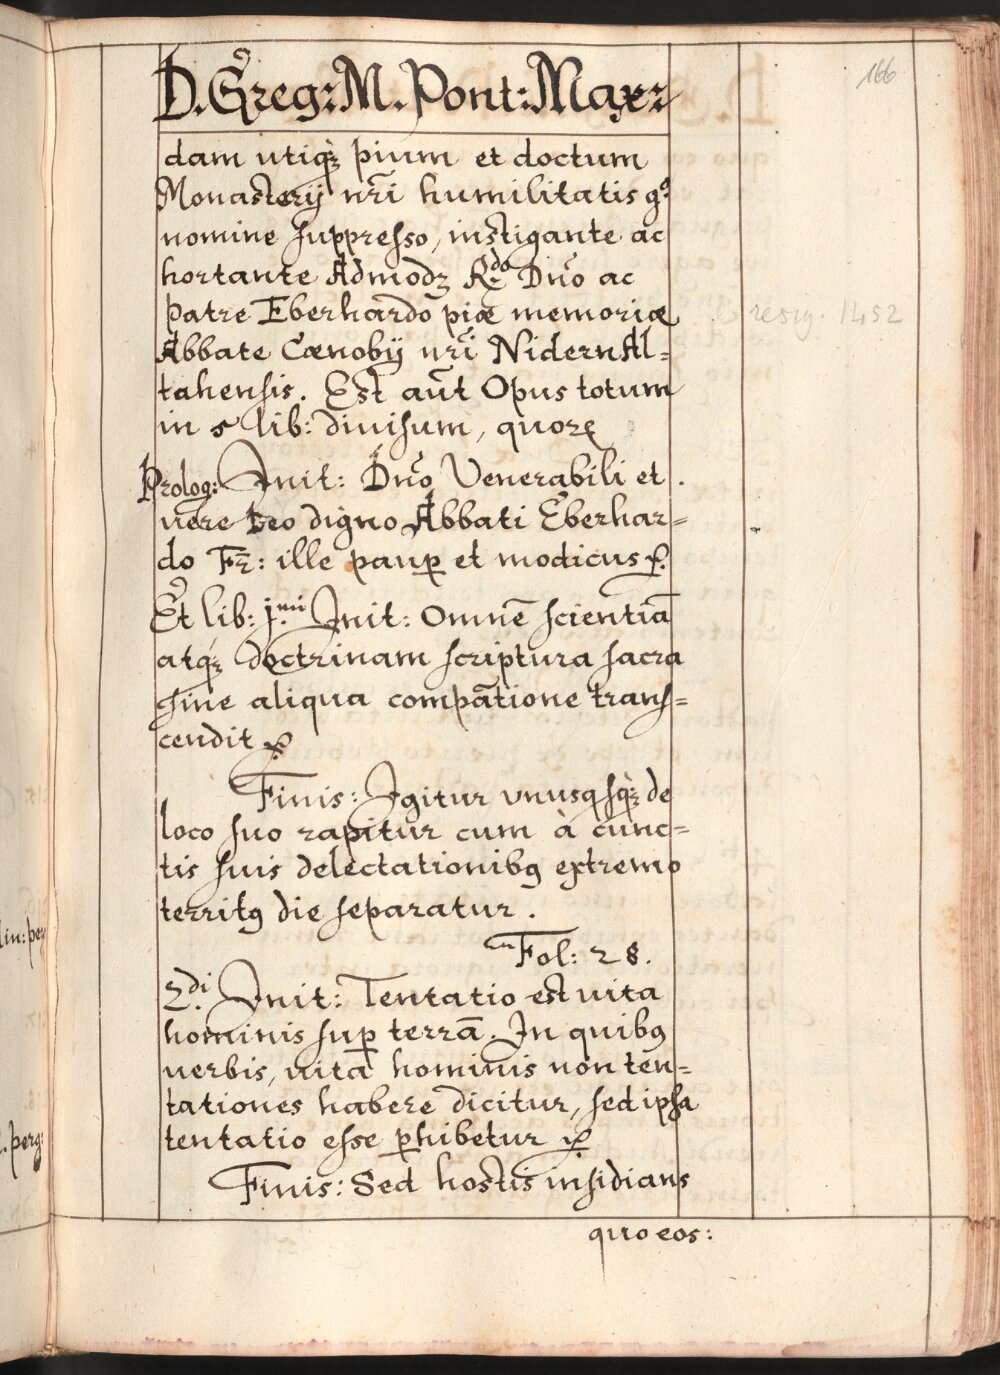 166
D. Greg: M. Pont: Max:
dam utiqꝫ pium et doctum
Monasterij nr̄i humilitatis gᵒ
nomine suppresso, instigante ac
hortante Admodꝫ R.ᵈᵒ Dn̄o ac
patre Eberhardo piæ memoriæ
resig. 1452
Abbate Cœnobij nr̄i NidernAl=
tahensis. Est aūt Opus totum
in 5 lib: diuisum, quoꝝ
Prolog: Init: Dn̄o Venerabili et
uere Deo digno Abbati Eberhar=
do Fr̄: ille paup̱ et modicus ꝛc.
Et lib: j.ᵐⁱ Init: Omnē scientiā
atqꝫ doctrinam scriptura sacra
sine aliqua comp̄atione trans=
cendit ꝛc
Finis: Igitur vnusqsqꝫ de
loco suo rapitur cum à cunc=
tis suis delectationibꝰ extremo
territꝰ die separatur.
Fol: 28.
2.ᵈⁱ Init: Tentatio est uita
hominis sup̱ terrā. In quibꝰ
uerbis, uita hominis non ten=
tationes habere dicitur, sed ipsa
tentatio esse ꝑhibetur ꝛc
Finis: Sed hostis insidians
quo eos:
lin: per
. perg: